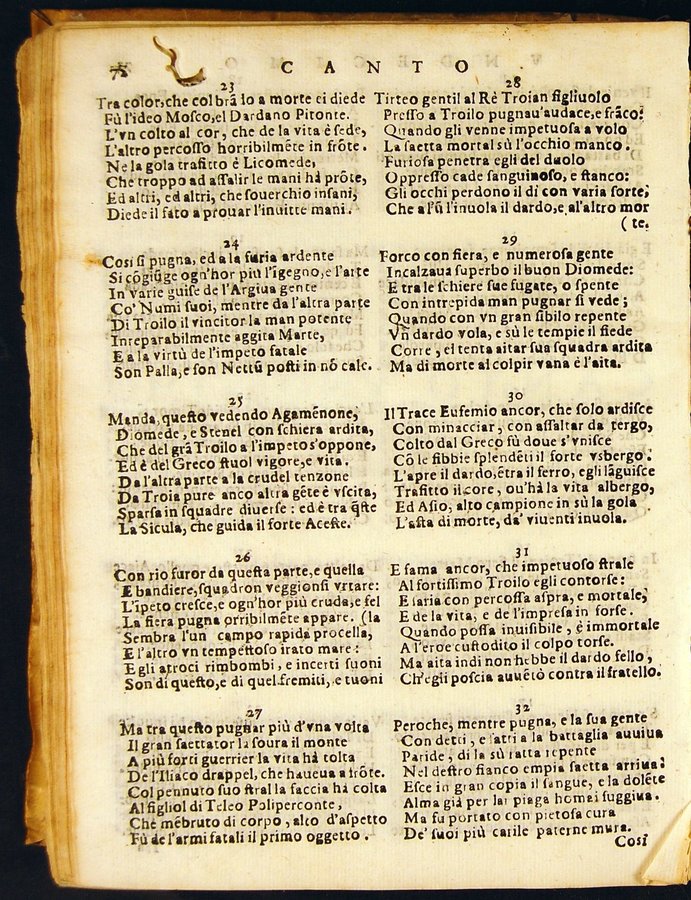 72 CANTO
23
Tra color, che col brā lo a morte ei diede
Fù l'ideo Mosco, el Dardano Pitonte.
L'vn colto al cor, che de la vita è sede,
L'altro percosso horribilmēte in frōte.
Ne la gola trafitto è Licomede,
Che troppo ad assalir le mani hà prōte,
Ed altri, ed altri, che souerchio insani,
Diede il fato a prouar l'inuitte mani.
24
Così si pugna, ed a la furia ardente
Si cōgiūge ogn'hor più l'īgegno, e l'arte
In varie guise de l'Argiua gente
Co' Numi suoi, mentre da l'altra parte
Di Troilo il vincitor la man potente
Inreparabilmente aggita Marte,
E a la virtù de l'impeto fatale
Son Palla, e son Nettū posti in nō cale.
25
Manda, questo vedendo Agamēnone,
Diomede, e Stenel con schiera ardita,
Che del grā Troilo a l'impeto s'oppone,
Ed è del Greco stuol vigore, e vita.
Da l'altra parte a la crudel tenzone
Da Troia pure anco altra gēte è vscita,
Sparsa in squadre diuerse: ed è tra q̃ste
La Sicula, che guida il forte Aceste.
26
Con rio furor da questa parte, e quella
E bandiere, squadron veggionsi vrtare:
L'īpeto cresce, e ogn'hor più cruda, e fel
La fiera pugna orribilmēte appare. (la
Sembra l'un campo rapida procella,
E l'altro vn tempestoso irato mare:
E gli atroci rimbombi, e incerti suoni
Son di questo, e di quel fremiti, e tuoni
27
Ma tra questo pugnar più d'vna volta
Il gran saettator la soura il monte
A più forti guerrier la vita hà tolta
De l'Iliaco drappel, che haueua a frōte.
Col pennuto suo stral la faccia hà colta
Al figliol di Teleo Poliperconte,
Che mēbruto di corpo, alto d'aspetto
Fù de l'armi fatali il primo oggetto.
28
Tirteo gentil al Rè Troian figliuolo
Presso a Troilo pugnau'audace, e frāco:
Quando gli venne impetuosa a volo
La saetta mortal sù l'occhio manco.
Furiosa penetra egli del duolo
Oppresso cade sanguinoso, e stanco:
Gli occhi perdono il dì con varia sorte;
Che a l'ū l'inuola il dardo, e al'altro mor
( te.
29
Forco con fiera, e numerosa gente
Incalzaua superbo il buon Diomede:
E tra le schiere sue fugate, o spente
Con intrepida man pugnar si vede;
Quando con vn gran sibilo repente
Vn dardo vola, e sù le tempie il fiede
Corre, ei tenta aitar sua squadra ardita
Ma di morte al colpir vana è l'aita.
30
Il Trace Eufemio ancor, che solo ardisce
Con minacciar, con assaltar da tergo,
Colto dal Greco fù doue s'vnisce
Cō le fibbie splendēti il forte vsbergo.
L'apre il dardo, ētra il ferro, egli lāguisce
Trafitto il core, ou'hà la vita albergo,
Ed Asio, alto campione in sù la gola
L'asta di morte, da' viuenti inuola.
31
E sama ancor, che impetuoso strale
Al fortissimo Troilo egli contorse:
E saria con percossa aspra, e mortale,
E de la vita, e de l'impresa in forse.
Quando possa inuisibile, è immortale
A l'eroe custodito il colpo torse.
Ma aita indi non hebbe il dardo fello,
Ch'egli poscia auuētò contra il fratello.
32
Peroche, mentre pugna, e la sua gente
Con detti, e fatti a la battaglia auuiua
Paride, di la sù ratta repente
Nel destro fianco empia saetta arriua:
Esce in gran copia il sangue, e la dolēte
Alma già per la piaga homai fuggiua.
Ma fu portato con pietosa cura
De' suoi più cari le paterne mura.
Cosi